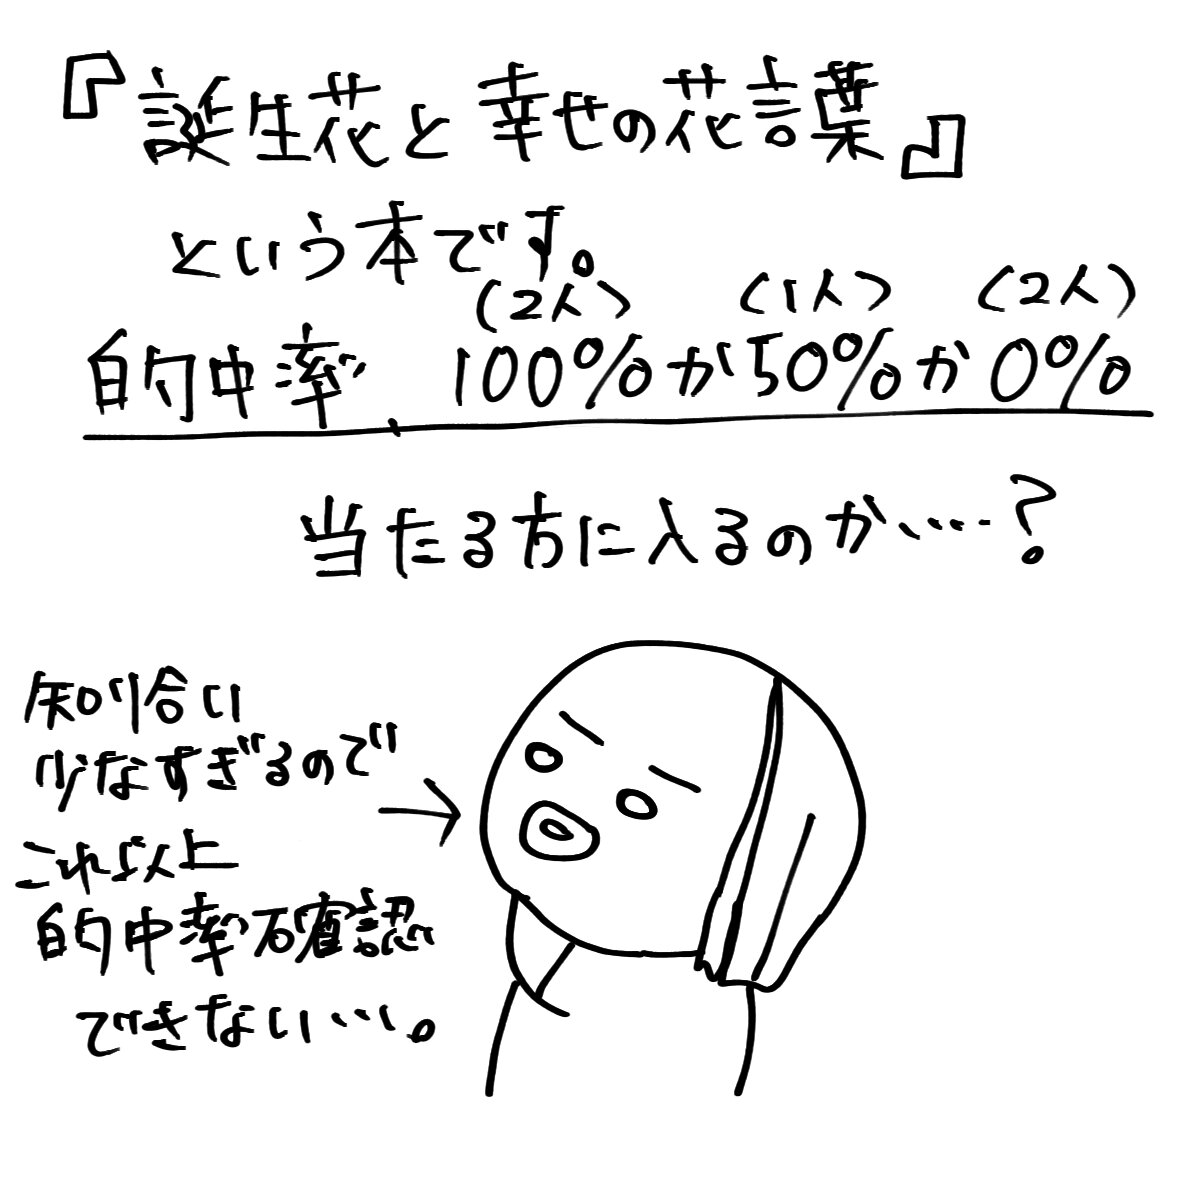 『誕生花と幸せの花言葉』
という本です。
(2人) (1人) (2人)
的中率、100%か50%か0%
当たる方に入るのか……?
知り合い
少なすぎるので
これ以上
的中率確認
できない…。